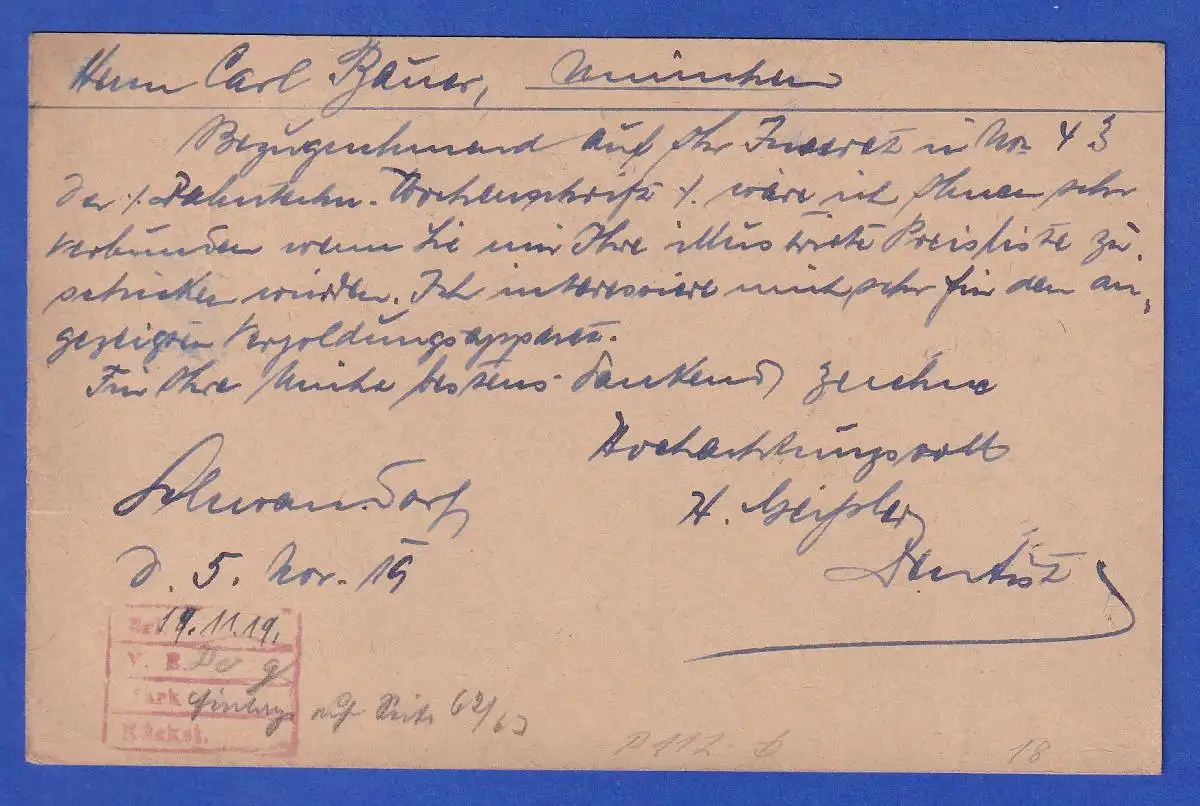 Herrn Carl Bauer, München
Bezugnehmend auf Ihr Inserat in No 43
der /. Zahntechn. Wochenschrift /. wäre ich Ihnen sehr
verbunden wenn Sie mir Ihre illustrierte Preisliste zu
schicken würden. Ich interessiere mich sehr für den an,
gezeigten Vergoldungsapparat.
Für Ihre Mühe bestens dankend zeichne
Hochachtungsvoll
Schwandorf
H. Geißler
d. 5. Nov. 19
Dentist
19.11.19.
V. B.
auf Seite 62/63
Rückst.
P 112 b
18